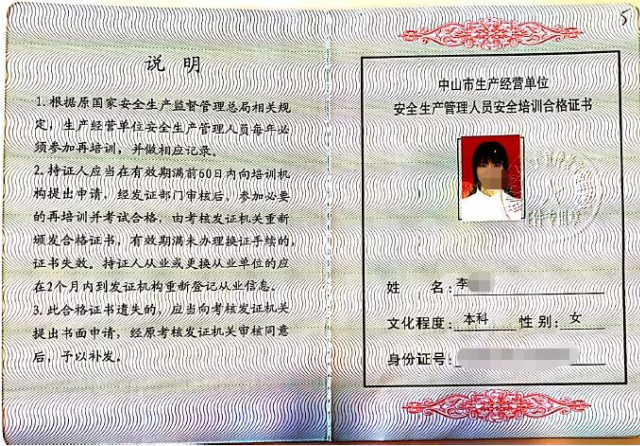 说 明
1. 根据原国家安全生产监督管理总局相关规
定，生产经营单位安全生产管理人员每年必
须参加再培训，并做相应记录。
2. 持证人应当在有效期满前60日内向培训机
构提出申请，经发证部门审核后，参加必要
的再培训并考试合格，由考核发证机关重新
颁发合格证书，有效期满未办理换证手续的，
证书失效。持证人从业或更换从业单位的应
在2个月内到发证机构重新登记从业信息。
3. 此合格证书遗失的，应当向考核发证机关
提出书面申请，经原考核发证机关审核同意
后，予以补发。
5
中山市生产经营单位
安全生产管理人员安全培训合格证书
姓 名：李
文化程度：本科 性 别：女
身份证号：